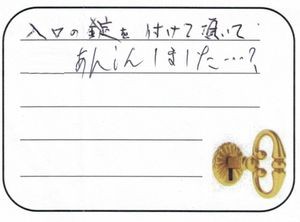 入口の錠を付けて頂いて
あんしんしました…?